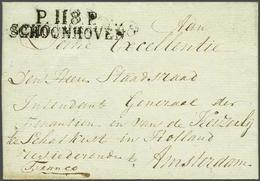 P. 118 P.
SCHOONHOVEN
Aan
Excellentie
Den Heer Staadsraad
Intendant Generaal der
Finantien en van de
Schatkist in Holland
te
Amsterdam
Franco